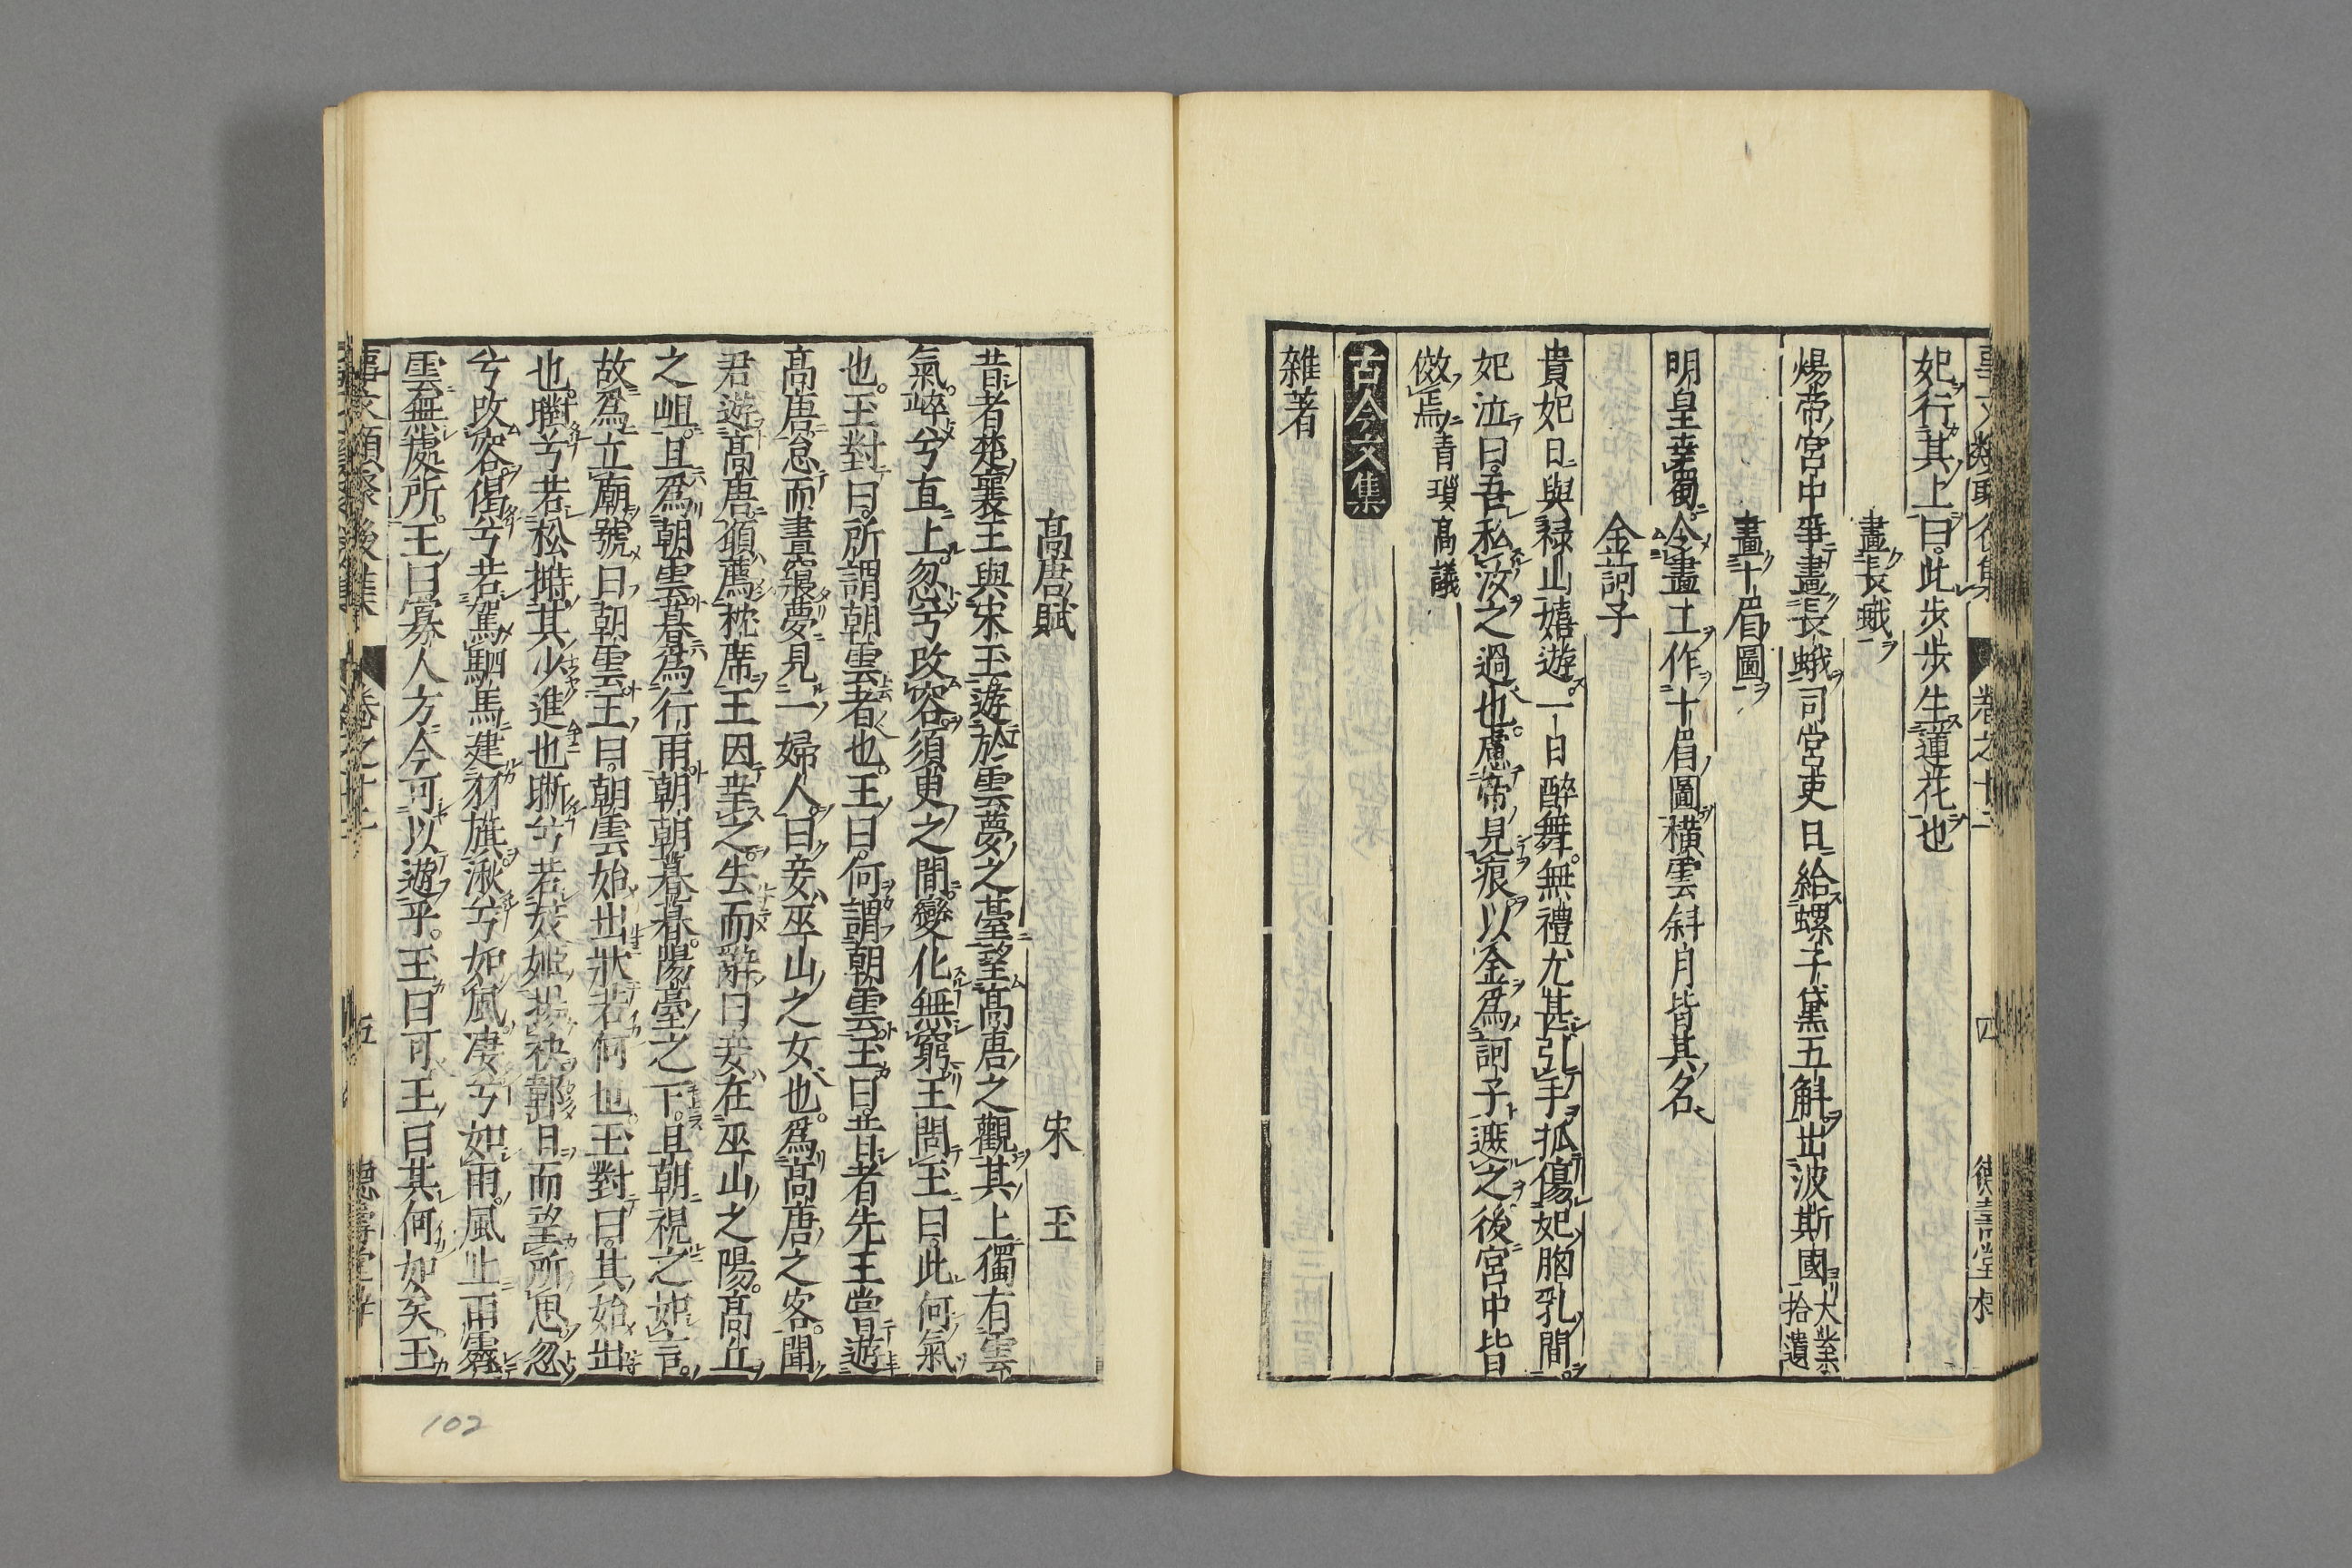 妃行其上曰此步步生蓮花也
畫長蛾
煬帝宮中爭畫長蛾司宮吏日給螺子黛五斛出波斯國大業拾遺
畫十眉圖
明皇幸蜀令畫工作十眉圖橫雲斜月皆其名
金訶子
貴妃日與祿山嬉遊一日醉舞無禮尤甚引手抓傷妃胸乳間
妃泣曰吾私汝之過也慮帝見痕以金為訶子遮之後宮中皆
倣焉青瑣高議
古今文集
雜著
高唐賦 宋玉
昔者楚襄王與宋玉遊於雲夢之臺望高唐之觀其上獨有雲
氣崪兮直上忽兮改容須臾之間變化無窮王問玉曰此何氣
也玉對曰所謂朝雲者也王曰何謂朝雲玉曰昔者先王嘗遊
高唐怠而晝寢夢見一婦人曰妾巫山之女也爲高唐之客聞
君遊高唐願薦枕席王因幸之去而辭曰妾在巫山之陽高丘
之岨旦爲朝雲暮爲行雨朝朝暮暮陽臺之下旦朝視之如言
故爲立廟號曰朝雲王曰朝雲始出狀若何也玉對曰其始出
也㬣兮若松榯其少進也晰兮若姣姬揚袂鄣日而望所思忽
兮改容偈兮若駕駟馬建羽旗湫兮如風凄兮如雨風止雨霽
雲無處所王曰寡人方今可以遊乎玉曰可王曰其何如矣玉
事文類聚後集 卷之十二 五
102